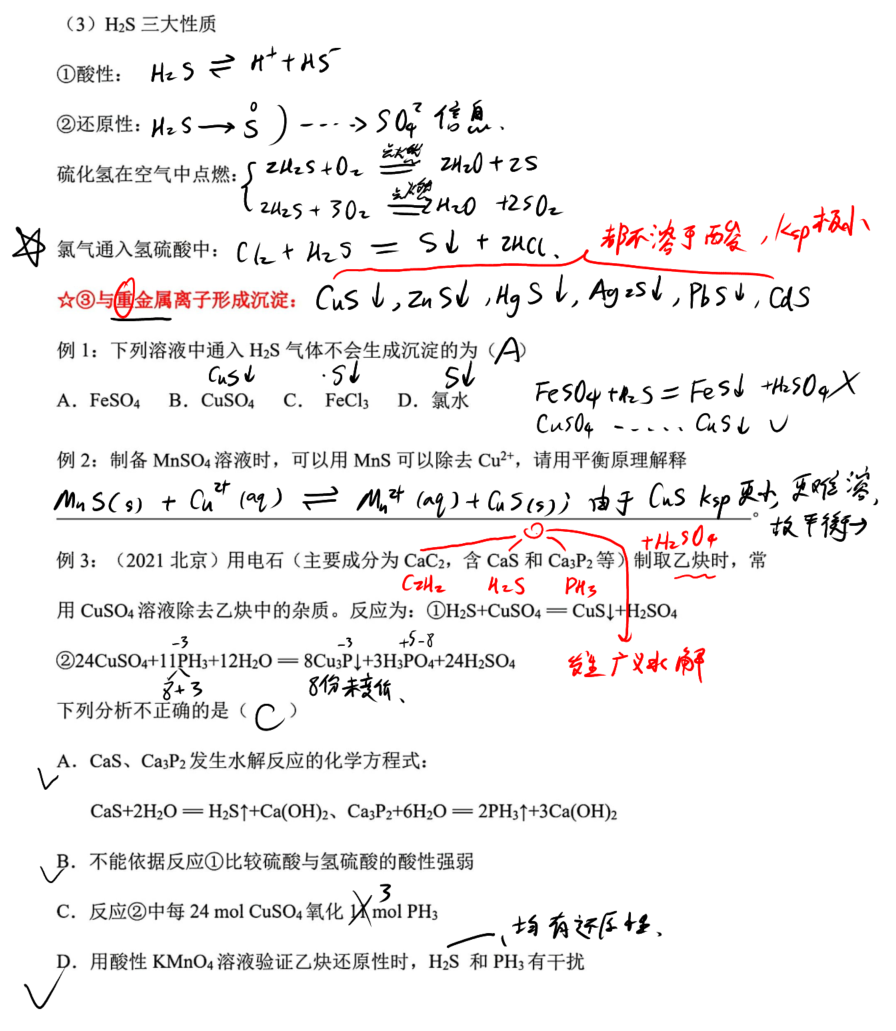 （3）H₂S 三大性质
①酸性： H₂S ⇌ H⁺ + HS⁻
②还原性：H₂S → S⁰ ) ----> SO₄²⁻ 信息.
硫化氢在空气中点燃：{ 2H₂S + O₂ 点燃══ 2H₂O + 2S
2H₂S + 3O₂ 点燃══ 2H₂O + 2SO₂
☆ 氯气通入氢硫酸中：Cl₂ + H₂S = S↓ + 2HCl. 都不溶于 酸，Ksp极小
☆③与重金属离子形成沉淀： CuS↓, ZnS↓, HgS↓, Ag₂S↓, PbS↓, CdS
例 1：下列溶液中通入 H₂S 气体不会生成沉淀的为（A）
CuS↓ ·S↓ S↓
A．FeSO₄ B．CuSO₄ C． FeCl₃ D．氯水
FeSO₄ + H₂S = FeS↓ + H₂SO₄ ×
CuSO₄ ------ CuS↓ ∪
例 2：制备 MnSO₄ 溶液时，可以用 MnS 可以除去 Cu²⁺，请用平衡原理解释
MnS(s) + Cu²⁺(aq) ⇌ Mn²⁺(aq) + CuS(s)；由于 CuS Ksp 更小, 更难溶,
故平衡→
。
+H₂SO₄
例 3：（2021 北京）用电石（主要成分为 CaC₂，含 CaS 和 Ca₃P₂ 等）制取乙炔时，常
C₂H₂ H₂S PH₃
用 CuSO₄ 溶液除去乙炔中的杂质。反应为：①H₂S+CuSO₄＝CuS↓+H₂SO₄
-3 -3 +5-8
②24CuSO₄+11PH₃+12H₂O＝8Cu₃P↓+3H₃PO₄+24H₂SO₄
发生广义水解
8+3 8份未变价、
下列分析不正确的是（ C ）
✓A．CaS、Ca₃P₂ 发生水解反应的化学方程式：
CaS+2H₂O＝H₂S↑+Ca(OH)₂、Ca₃P₂+6H₂O＝2PH₃↑+3Ca(OH)₂
✓B．不能依据反应①比较硫酸与氢硫酸的酸性强弱
3
C．反应②中每 24 mol CuSO₄ 氧化 11 mol PH₃
均有还原性、
✓D．用酸性 KMnO₄ 溶液验证乙炔还原性时，H₂S 和 PH₃ 有干扰